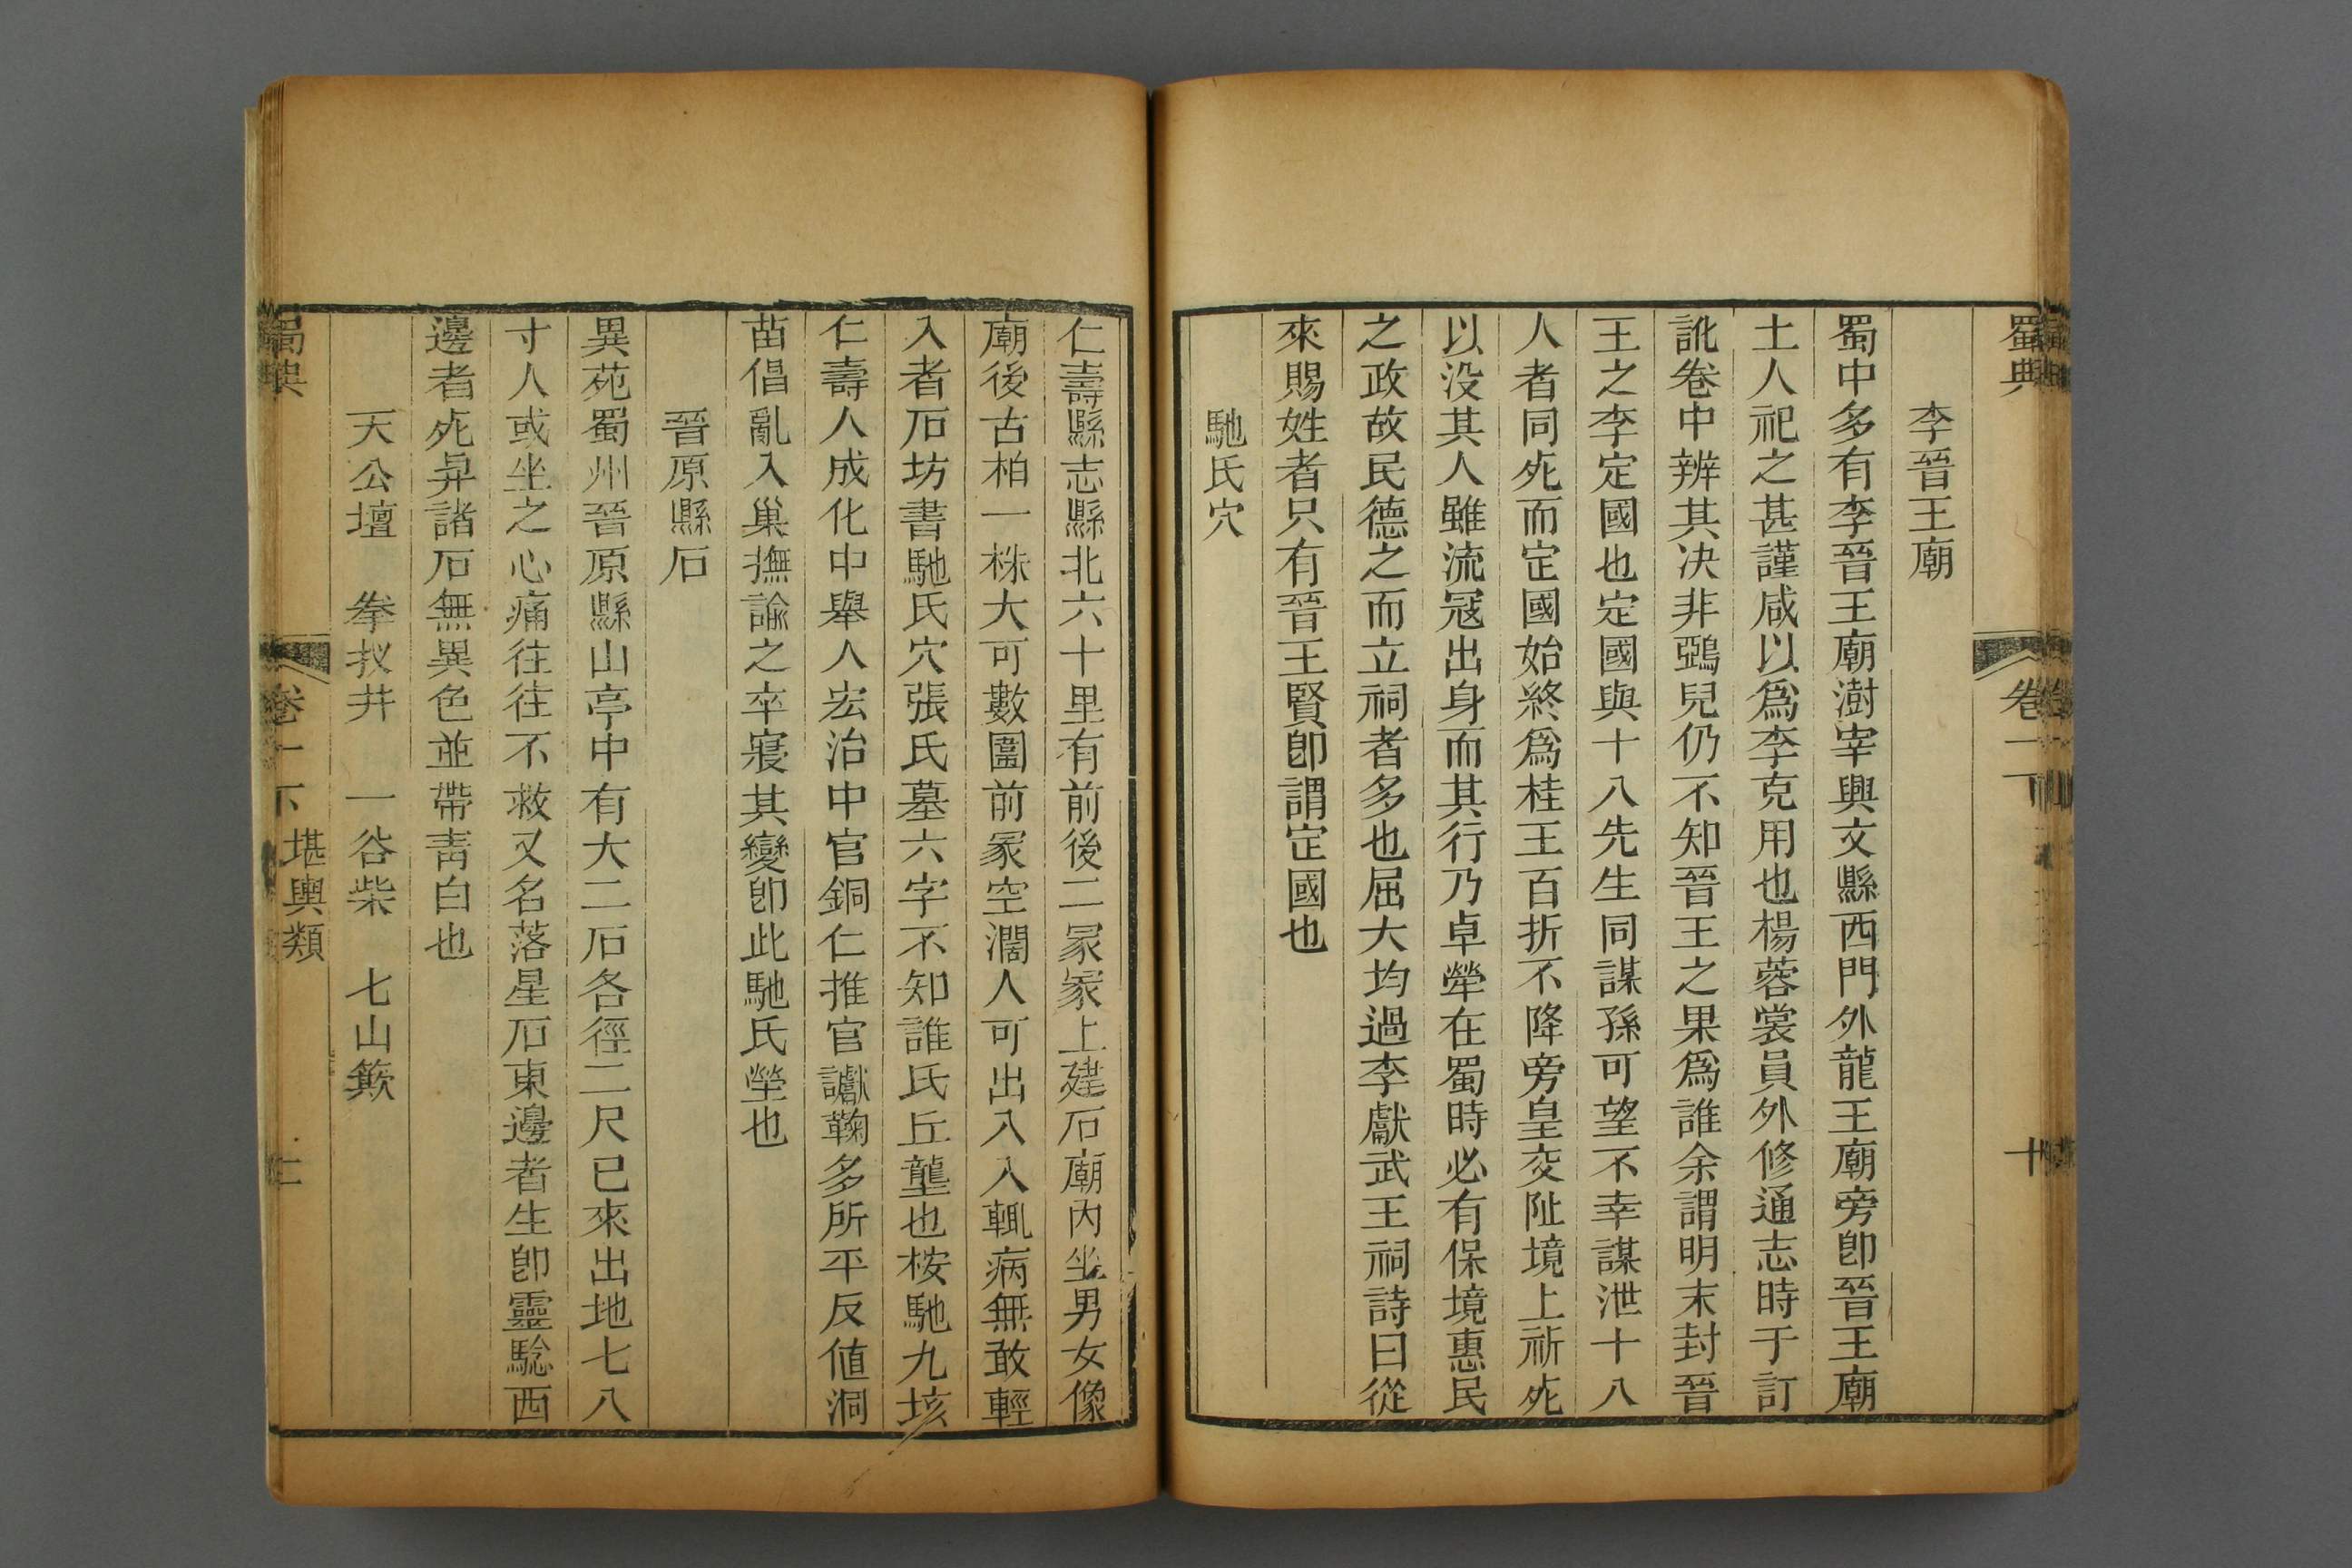 蜀典
卷一下
十
李晉王廟
蜀中多有李晉王廟澍宰興文縣西門外龍王廟旁卽晉王廟
土人祀之甚謹咸以爲李克用也楊蓉裳員外修通志時于訂
訛卷中辨其決非鵶兒仍不知晉王之果爲誰余謂明末封晉
王之李定國也定國與十八先生同謀孫可望不幸謀泄十八
人者同死而定國始終爲桂王百折不降旁皇交阯境上祈死
以没其人雖流冦出身而其行乃卓犖在蜀時必有保境惠民
之政故民德之而立祠者多也屈大均過李獻武王祠詩曰從
來賜姓者只有晉王賢卽謂定國也
馳氏穴
仁壽縣志縣北六十里有前後二冢冢上建石廟内坐男女像
廟後古柏一株大可數圍前冢空濶人可出入入輒病無敢輕
入者石坊書馳氏穴張氏墓六字不知誰氏丘壟也桉馳九垓
仁壽人成化中舉人宏治中官銅仁推官讞鞠多所平反値洞
苗倡亂入巢撫諭之卒寢其變卽此馳氏塋也
晉原縣石
異苑蜀州晉原縣山亭中有大二石各徑二尺已來出地七八
寸人或坐之心痛往往不救又名落星石東邊者生卽靈騐西
邊者死舁諸石無異色並帶靑白也
天公壇　拳扠井　一谷柴　七山籢
蜀典
卷一下
堪輿類